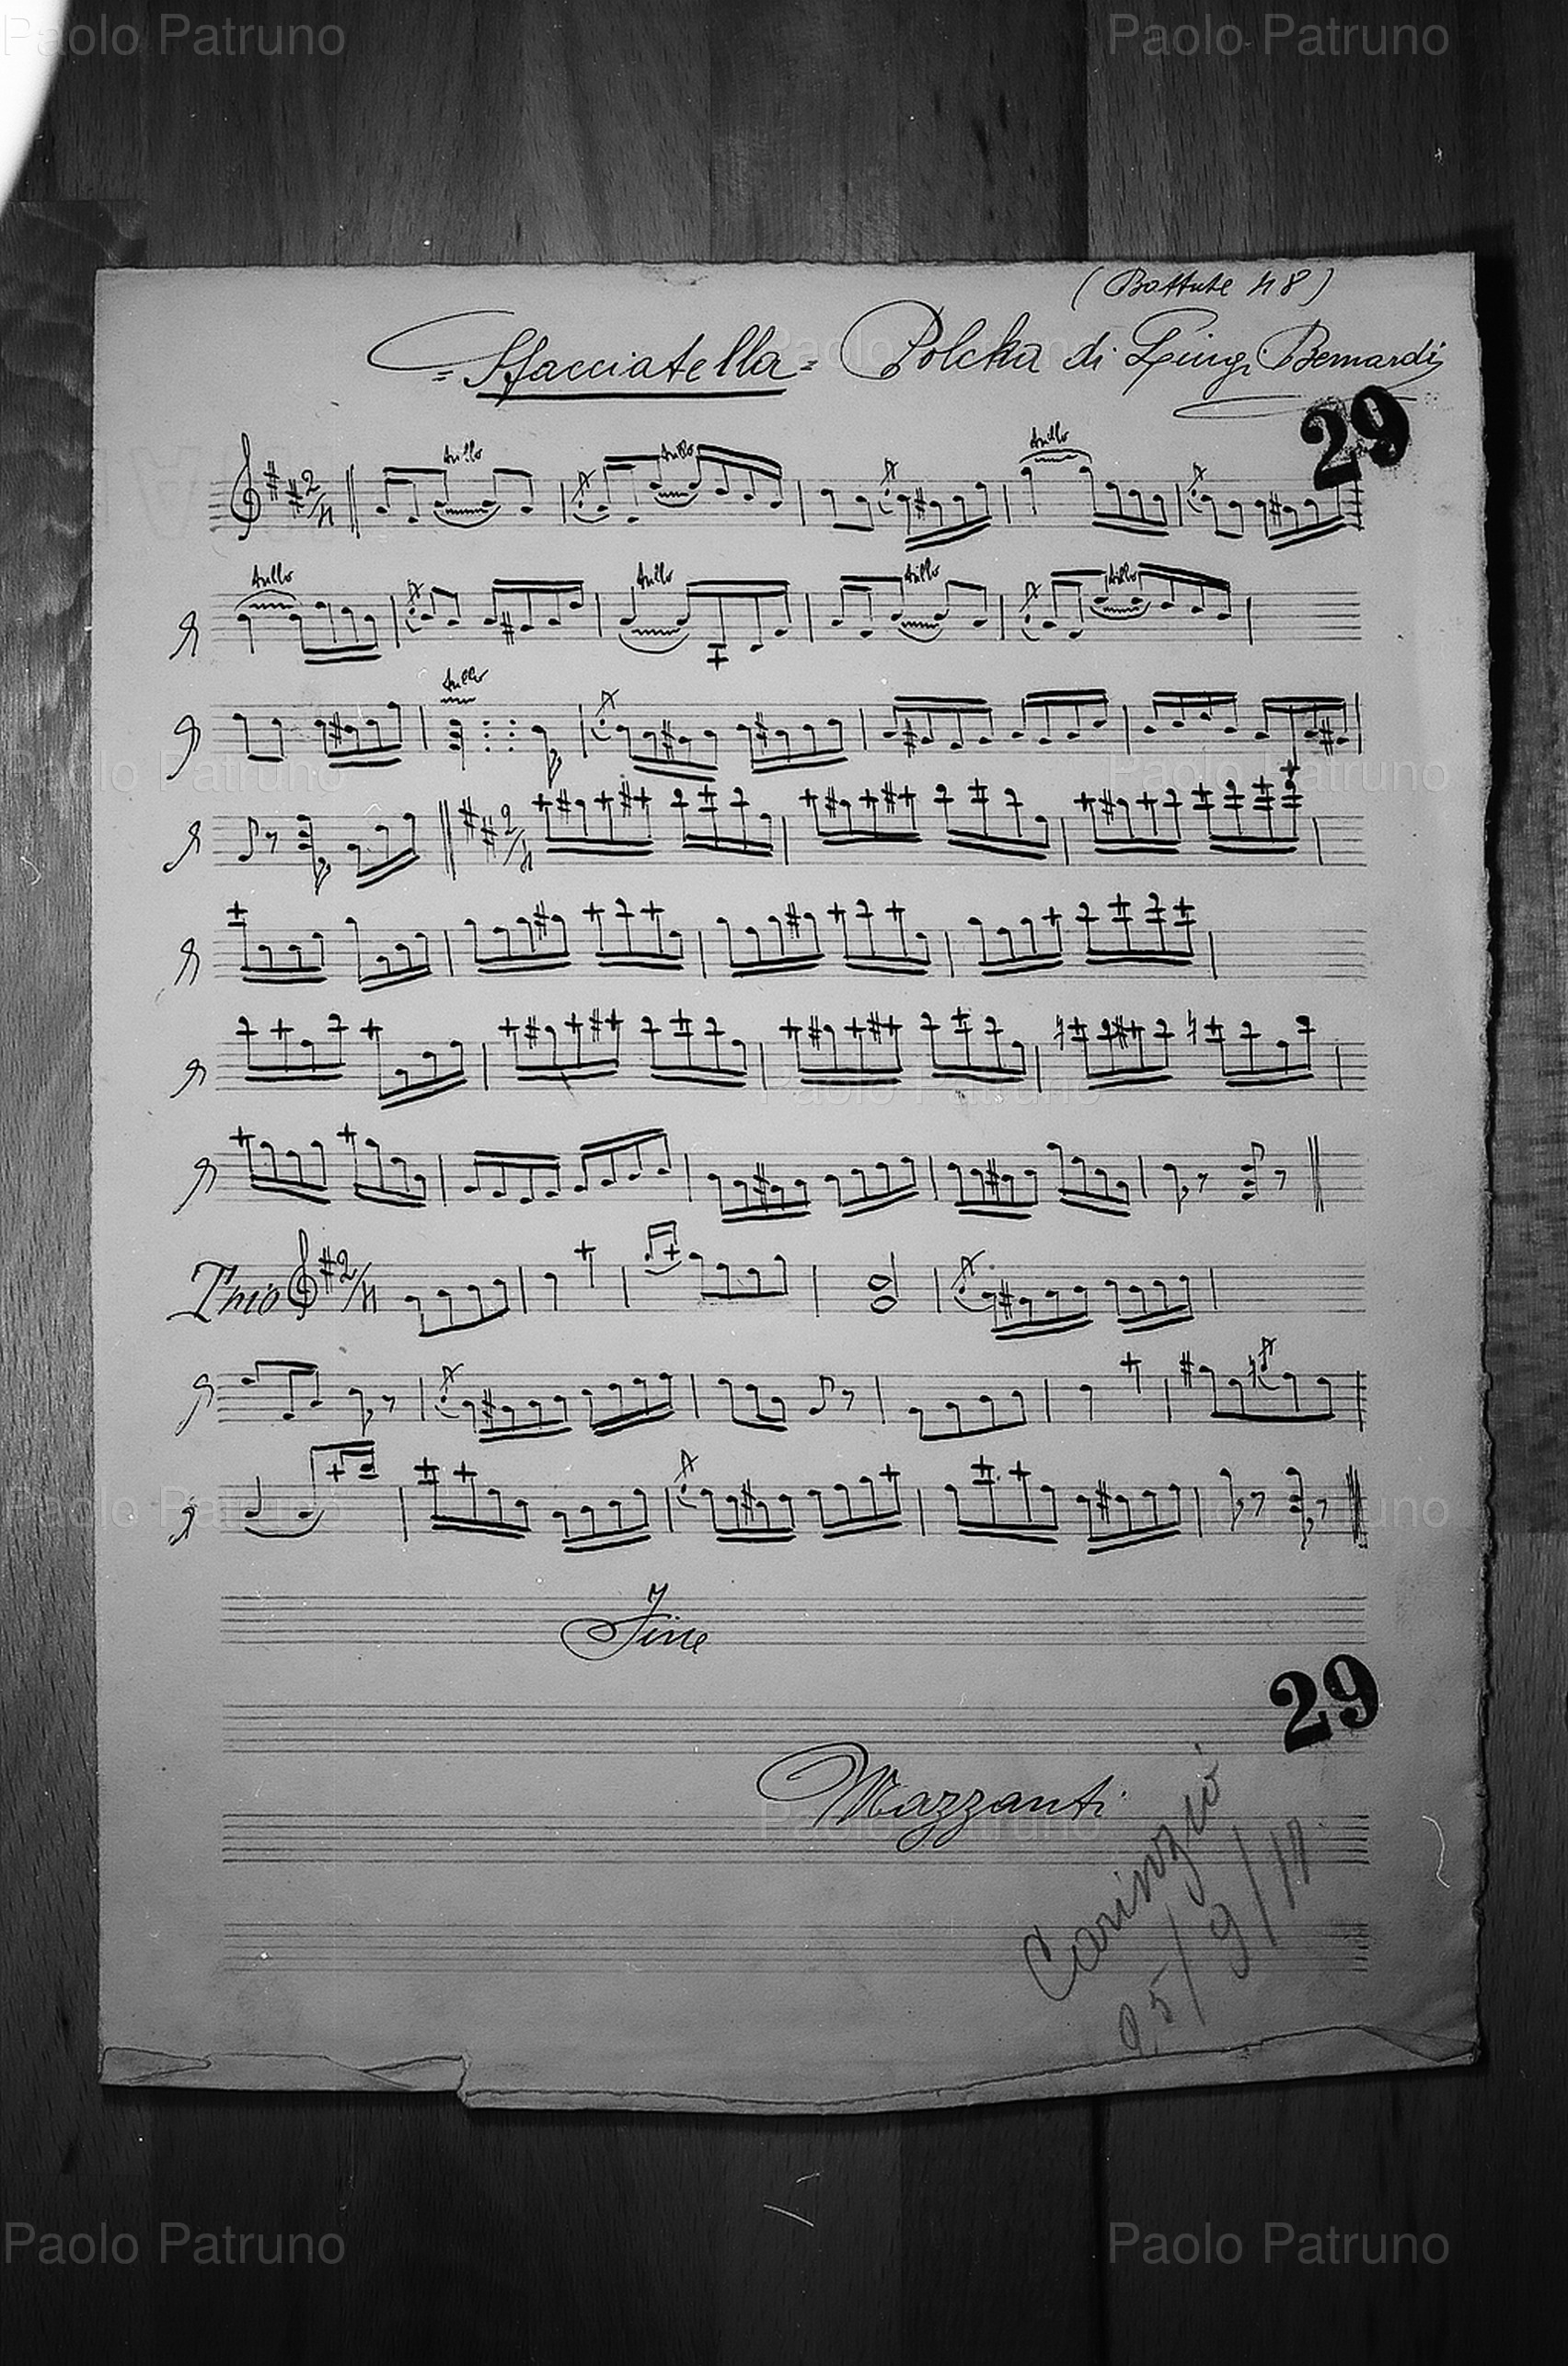 Paolo Patruno Paolo Patruno
(Battute 48)
"Sfacciatella" Polcka di Luigi Bernardi
Paolo Patruno
29
2/4
trillo trillo trillo
trillo trillo trillo trillo
trillo
Paolo Patruno Paolo Patruno
2/4
Paolo Patruno
Trio 2/4
Paolo Patruno Paolo Patruno
Fine
29
Mazzanti
Paolo Patruno
Paolo Patruno Paolo Patruno